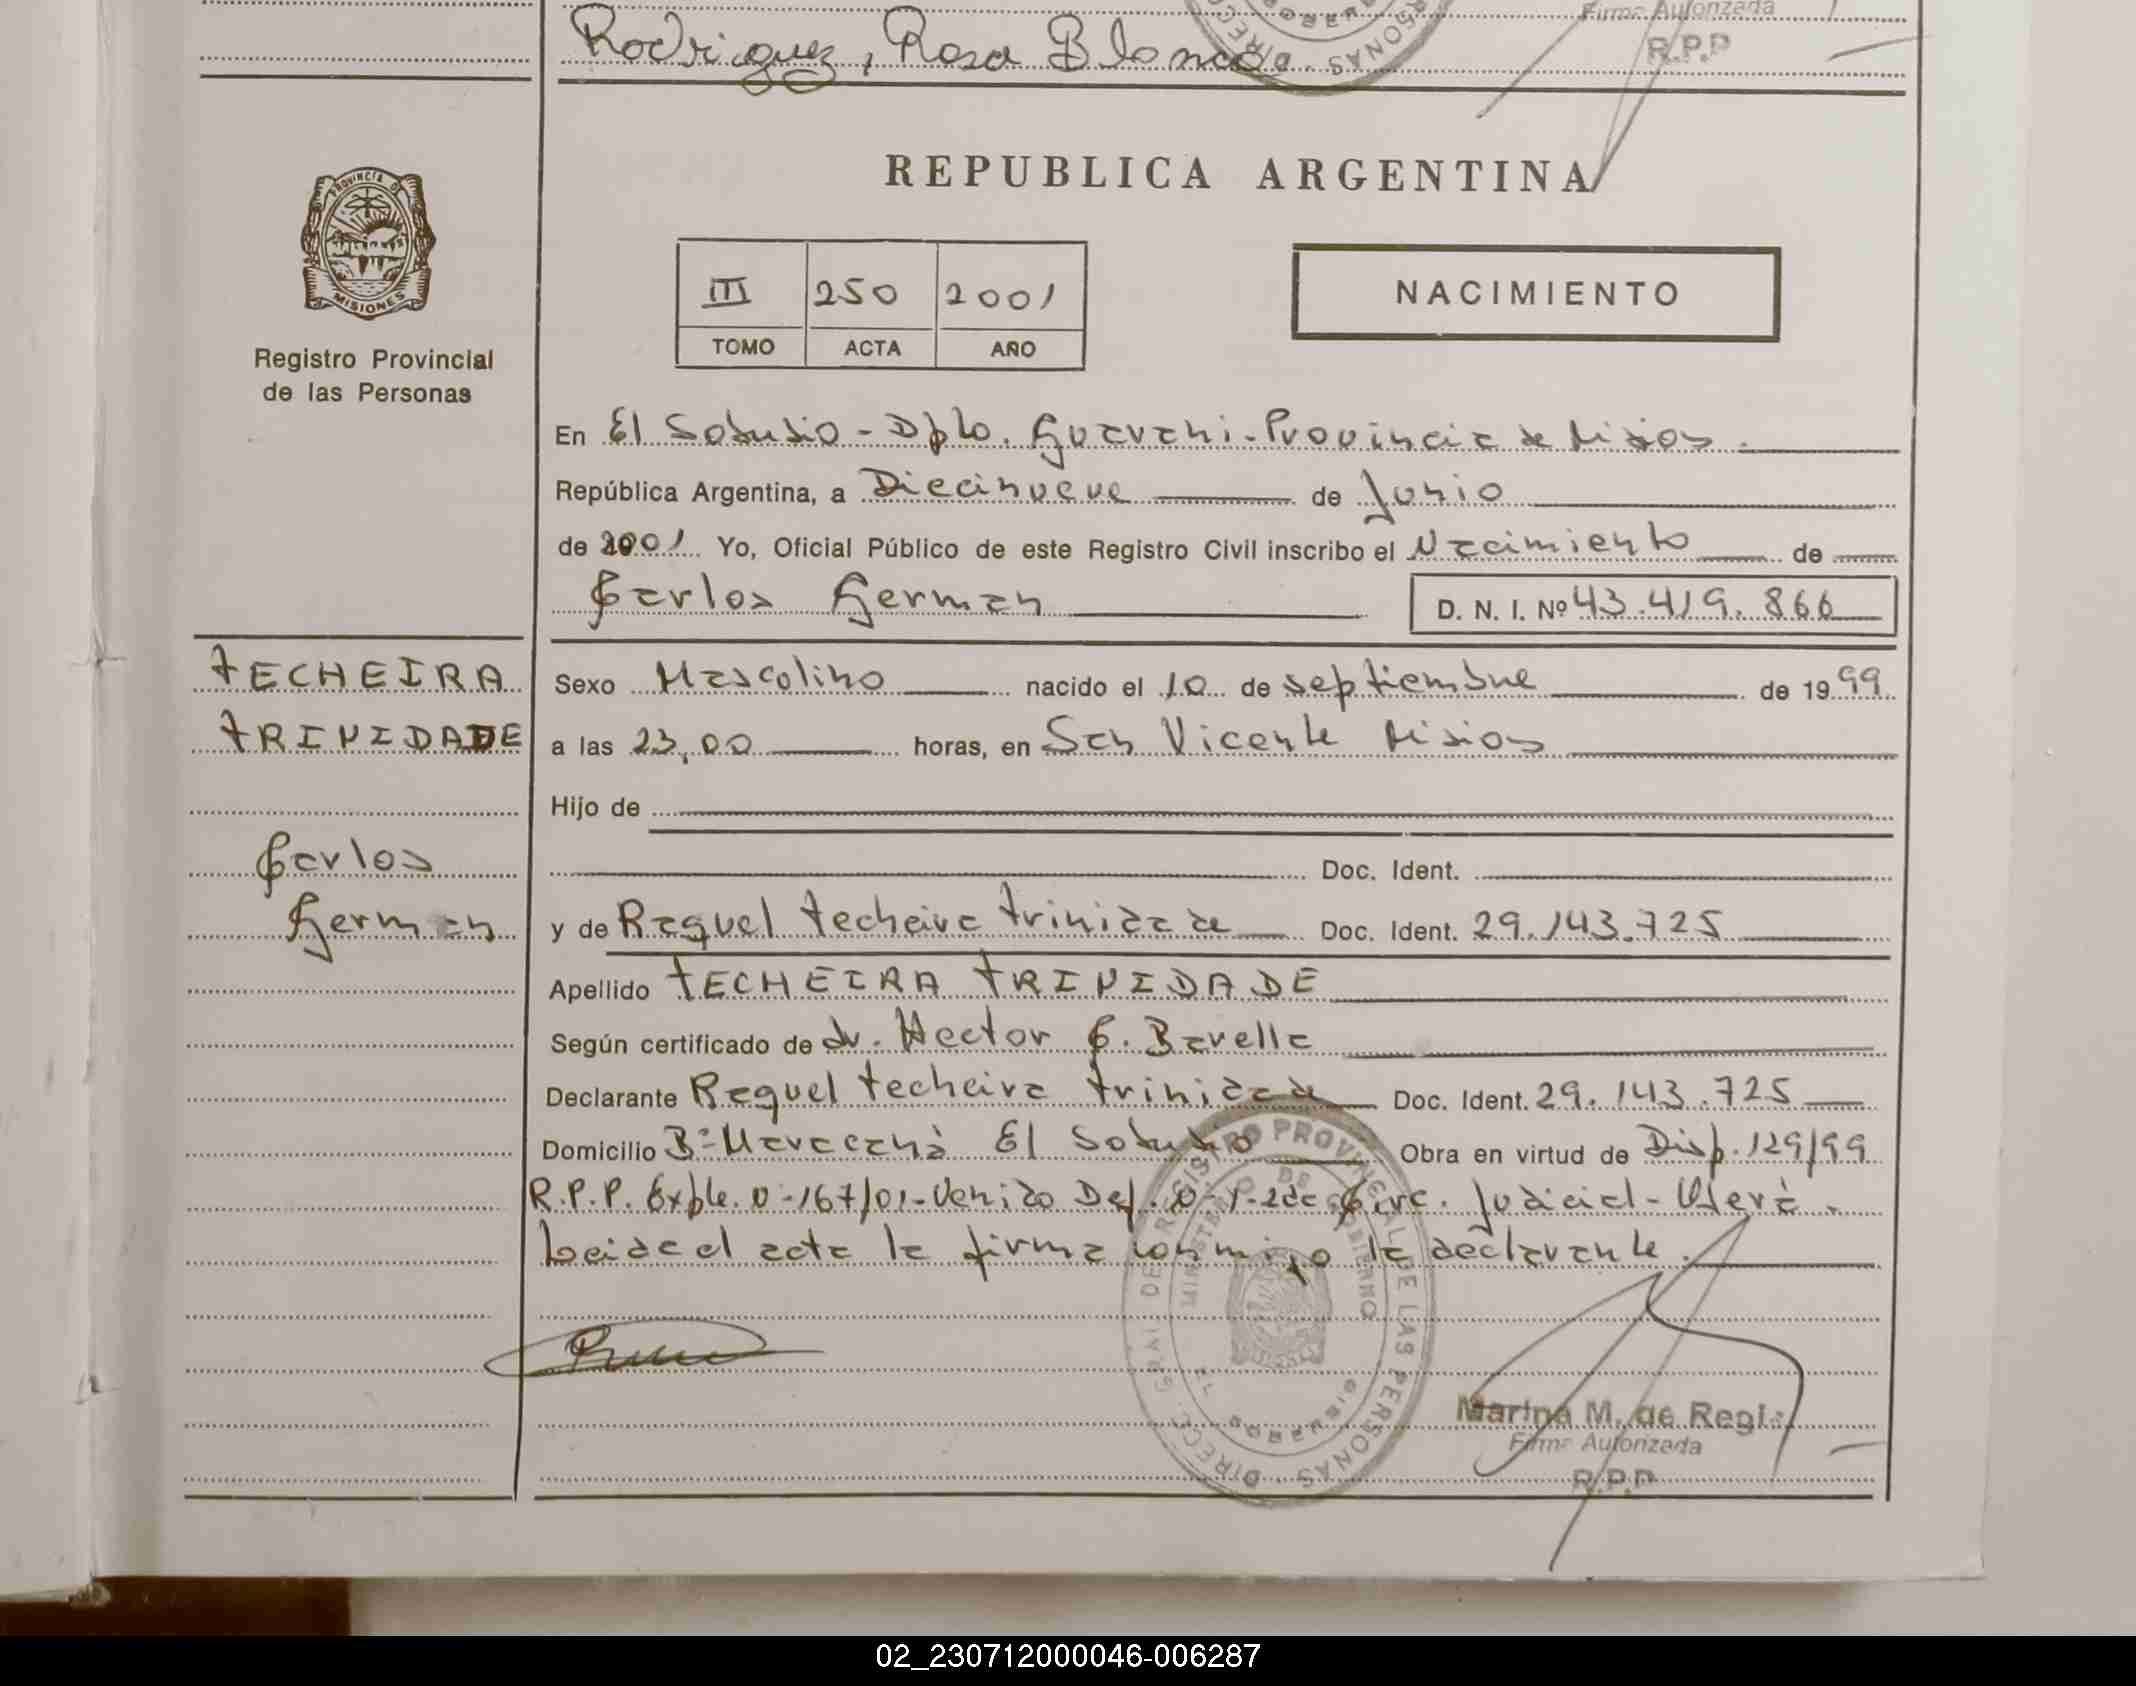 Rodriguez, Rosa Blanca
Firma Autorizada
R.P.P
PROVINCIA DE
MISIONES
Registro Provincial
de las Personas
REPUBLICA ARGENTINA
III 250 2001
TOMO ACTA AÑO
NACIMIENTO
En El Soberbio - Dpto. Guarani - Provincia de Misiones.
República Argentina, a Diecinueve de Junio
de 2001 Yo, Oficial Público de este Registro Civil inscribo el Nacimiento de
Carlos German
D. N. I. Nº 43.419.866
TECHEIRA
TRINIDADE
Carlos
German
Sexo Masculino nacido el 10 de septiembre de 1999
a las 23,00 horas, en San Vicente Misiones
Hijo de
Doc. Ident.
y de Raquel Techeira Trinidade Doc. Ident. 29.143.725
Apellido TECHEIRA TRINIDADE
Según certificado de dr. Hector C. Barella
Declarante Raquel Techeira Trinidade Doc. Ident. 29.143.725
Domicilio Bº Maracaná El Soberbio Obra en virtud de Disp. 129/99
R.P.P. Expte. 0-167/01- Venido Def. 0-1-2da Circ. Judicial - Oberá.
Leida el acta la firma conmigo la declarante.
DIRECC. GRAL. DE REGISTRO PROVINCIAL DE LAS PERSONAS
MINISTERIO DE GOBIERNO
EL SOBERBIO
Marina M. de Regi
Firma Autorizada
R.P.P.
02_230712000046-006287